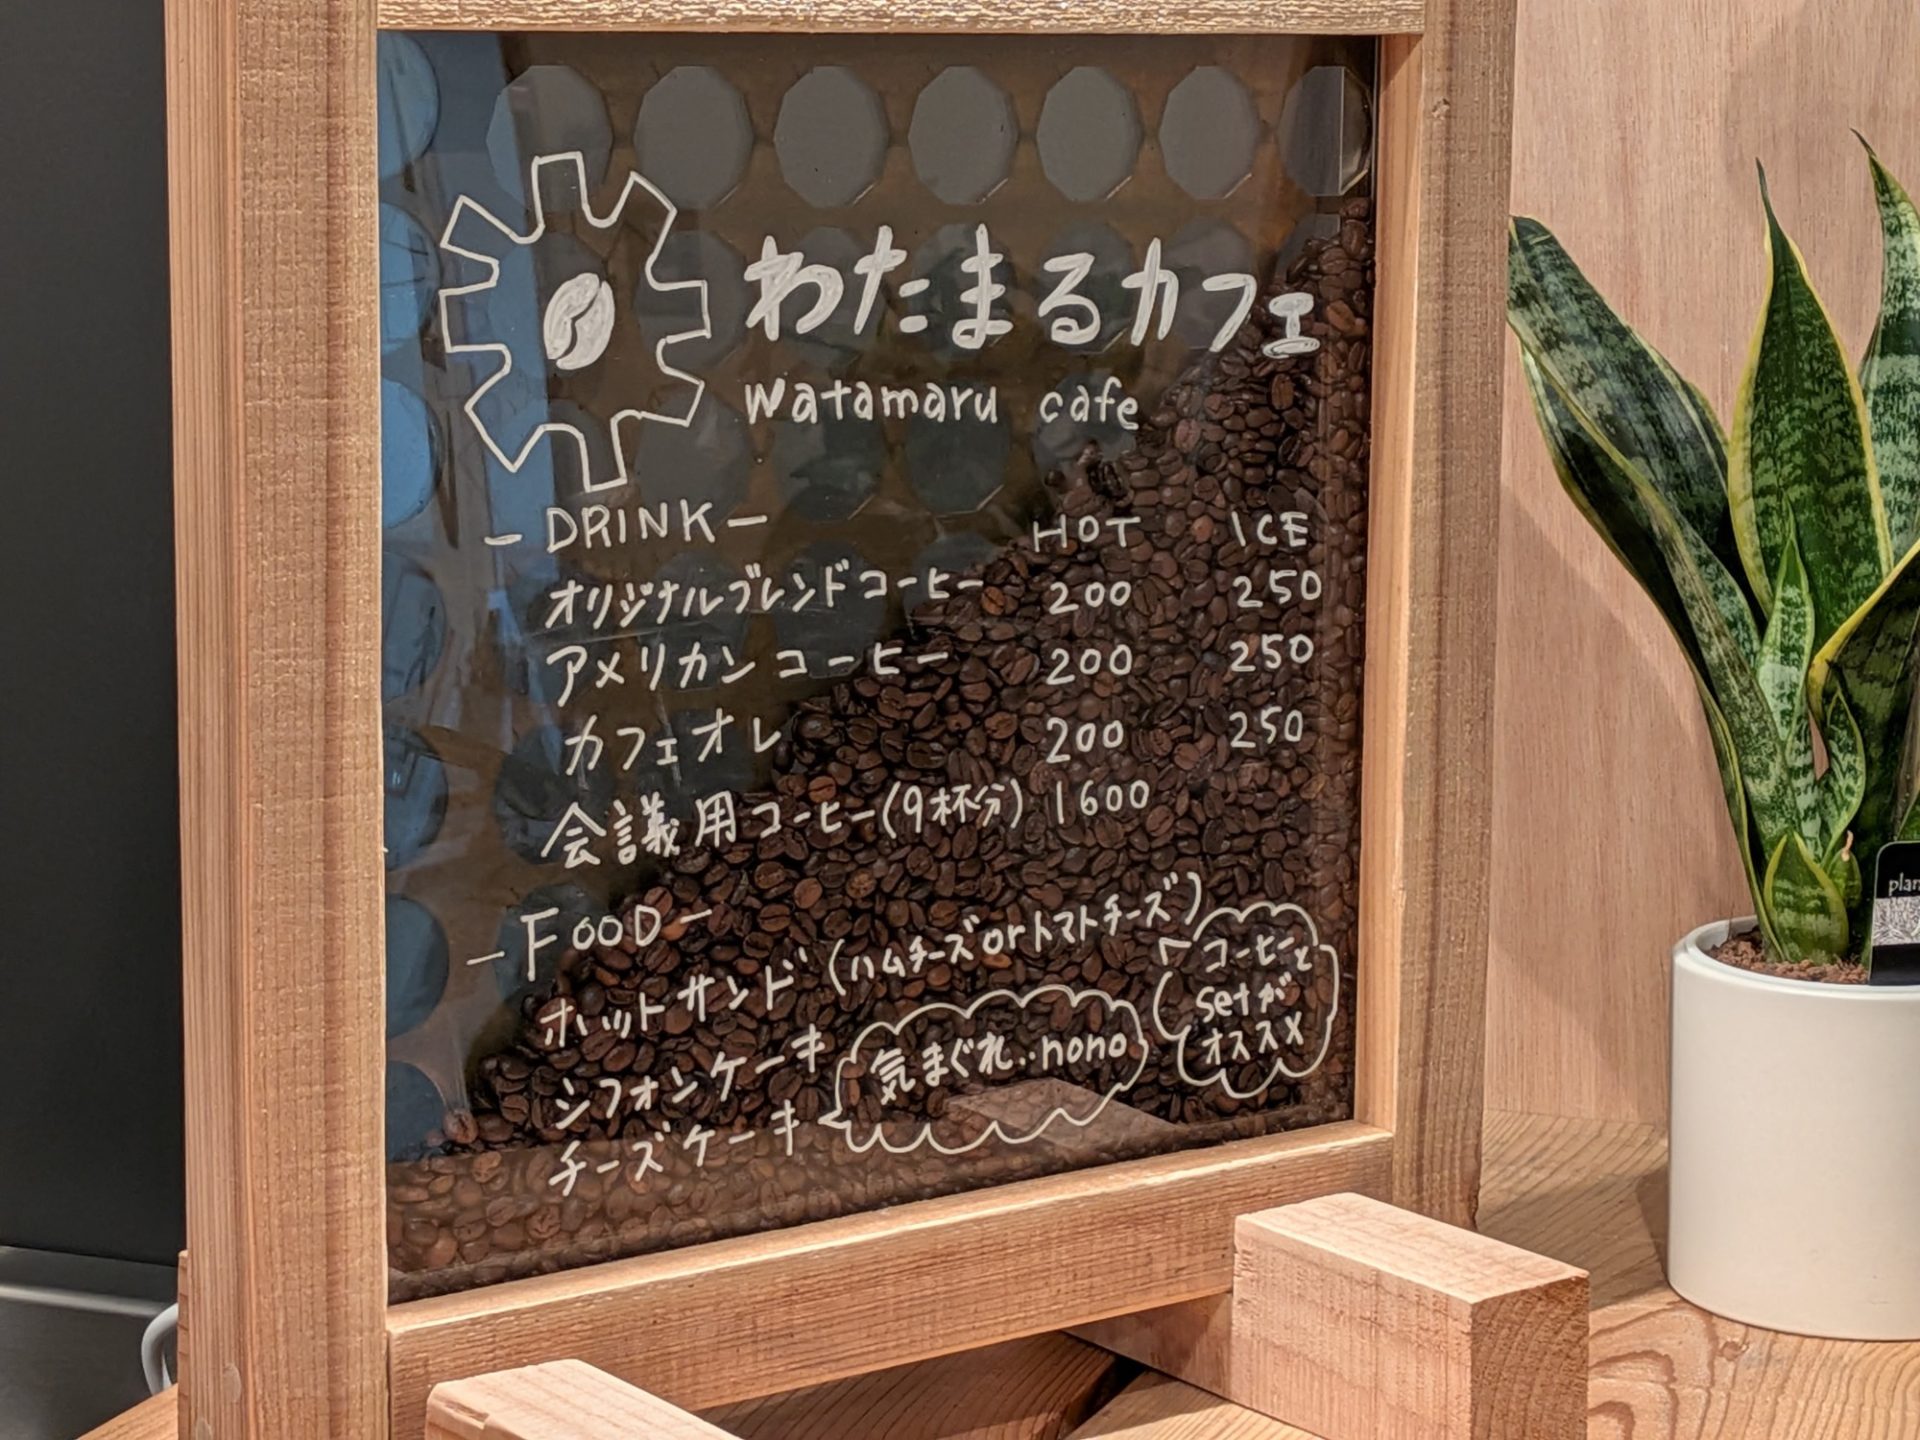 わたまるカフェ
watamaru cafe
- DRINK - HOT ICE
オリジナルブレンドコーヒー 200 250
アメリカンコーヒー 200 250
カフェオレ 200 250
会議用コーヒー(9杯分) 1600
- FOOD -
ホットサンド (ハムチーズorトマトチーズ)
コーヒーと
setが
オススメ
シフォンケーキ
チーズケーキ
気まぐれ..nono
plan